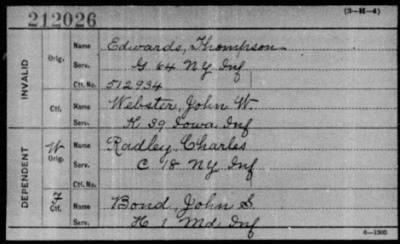 212026 (3-H-4)
INVALID
Orig. Name Edwards, Thompson
Serv. G 64 NY Inf
Ctf. No. 512934
Ctf. Name Webster, John W
Serv. K 39 Iowa Inf
DEPENDENT
W Orig. Name Radley Charles
Serv. C 18 NY Inf
Ctf. No.
F Ctf. Name Bond, John S.
Serv. H 1 Md Inf
6-1305